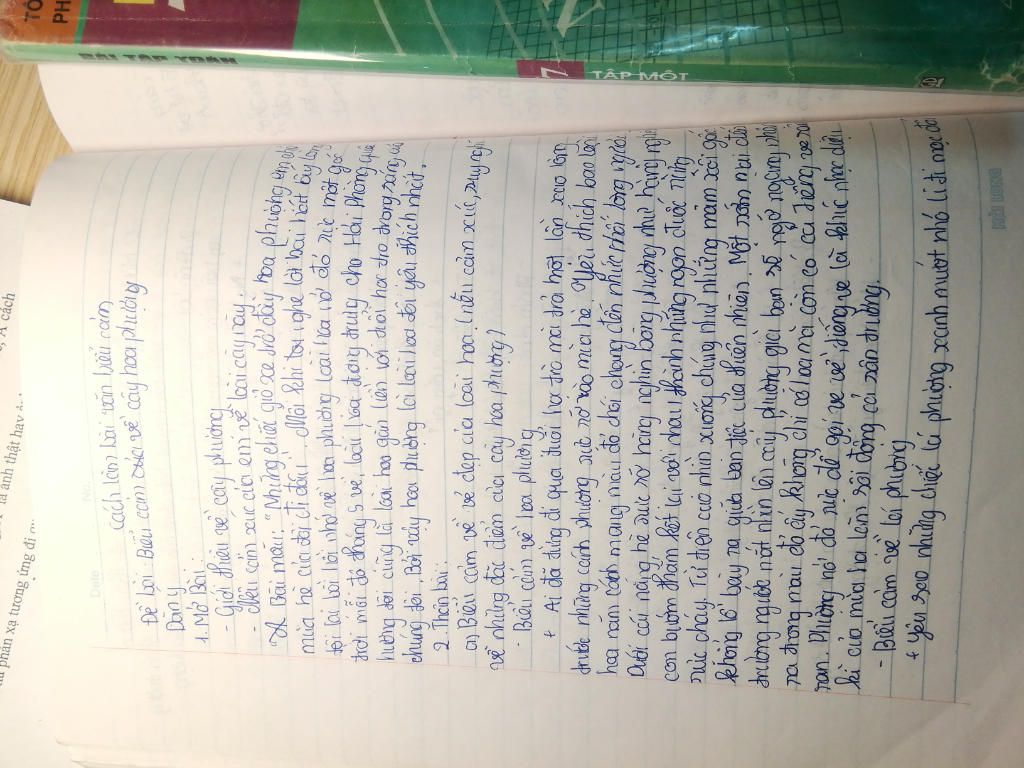 TÔ
PH
BÀI TẬP TOÁN
7
TẬP MỘT
là ảnh thật hay
phản xạ tương ứng đi
Date
No.
Cách làm bài văn biểu cảm
Đề bài: Biểu cảm của về cây hoa phượng
Dàn ý
1. Mở Bài:
- Giới thiệu về cây phượng
- Nêu cảm xúc của em về loài cây này.
* Bài mẫu: "Những chiếc giỏ xe chở đầy hoa phượng em chở
mùa hè của tôi đi đâu". Mỗi khi nghe lời bài hát bay bổng
tôi lại bồi hồi nhớ về hoa phượng loài hoa nở đỏ rực một góc
trời mỗi độ tháng 5 về. loài hoa đặc trưng cho Hải Phòng quê
hương tôi cũng là loài hoa gắn liền với tuổi học trò trong sáng của
chúng tôi. Bởi vậy hoa phượng là loài hoa tôi yêu thích nhất.
2. Thân bài:
a) Biểu cảm về vẻ đẹp của loài hoa (nêu cảm xúc, suy nghĩ
về những đặc điểm của cây hoa phượng)
- Biểu cảm về hoa phượng
+ Ai đã từng đi qua tuổi học trò mà chả một lần xao lòng
trước những cánh phượng rực nở vào mùa hè. Yêu thích bao bông
hoa năm cánh mang màu đỏ chói chang đến nhức nhối lòng người.
Dưới cái nắng hè rực rỡ hàng nghìn bông phượng như hàng nghìn
con bướm thắm kết lại với nhau thành những ngọn đuốc rừng
rực cháy. Từ trên cao nhìn xuống chúng như những mâm xôi gấc
khổng lồ bày ra giữa bàn tiệc của thiên nhiên. Một sớm mai đến
trường ngước mắt nhìn lên cây phượng già bạn sẽ ngỡ ngàng nhận
ra trong màu đỏ ấy không chỉ có hoa mà còn có cả tiếng ve râm
ran. Phượng nở đỏ rực để gọi ve về tiếng ve là khúc nhạc diệu
kì của mùa hạ làm sôi động cả sân trường.
- Biểu cảm về lá phượng
+ Yêu sao những chiếc lá phượng xanh mướt nhỏ li ti mọc đối